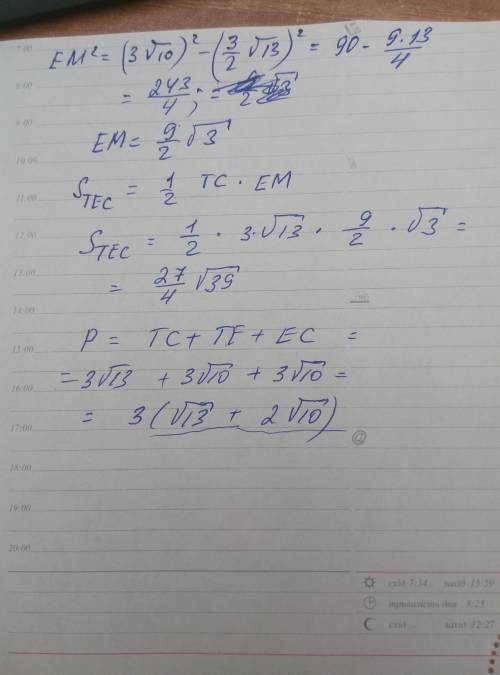 7:00
EM² = (3√10)² - (3/2 √13)² = 90 - 9·13/4
8:00
= 243/4 ; =
9:00
EM = 9/2 √3
10:00
S_TEC = 1/2 TC · EM
11:00
S_TEC = 1/2 · 3·√13 · 9/2 · √3 =
12:00
13:00
= 27/4 √39
14:00
P = TC + TE + EC =
15:00
= 3√13 + 3√10 + 3√10 =
16:00
= 3(√13 + 2√10)
17:00
@
18:00
19:00
20:00
схід 7:34 захід 15:59
тривалість дня 8:25
схід ... захід 12:27